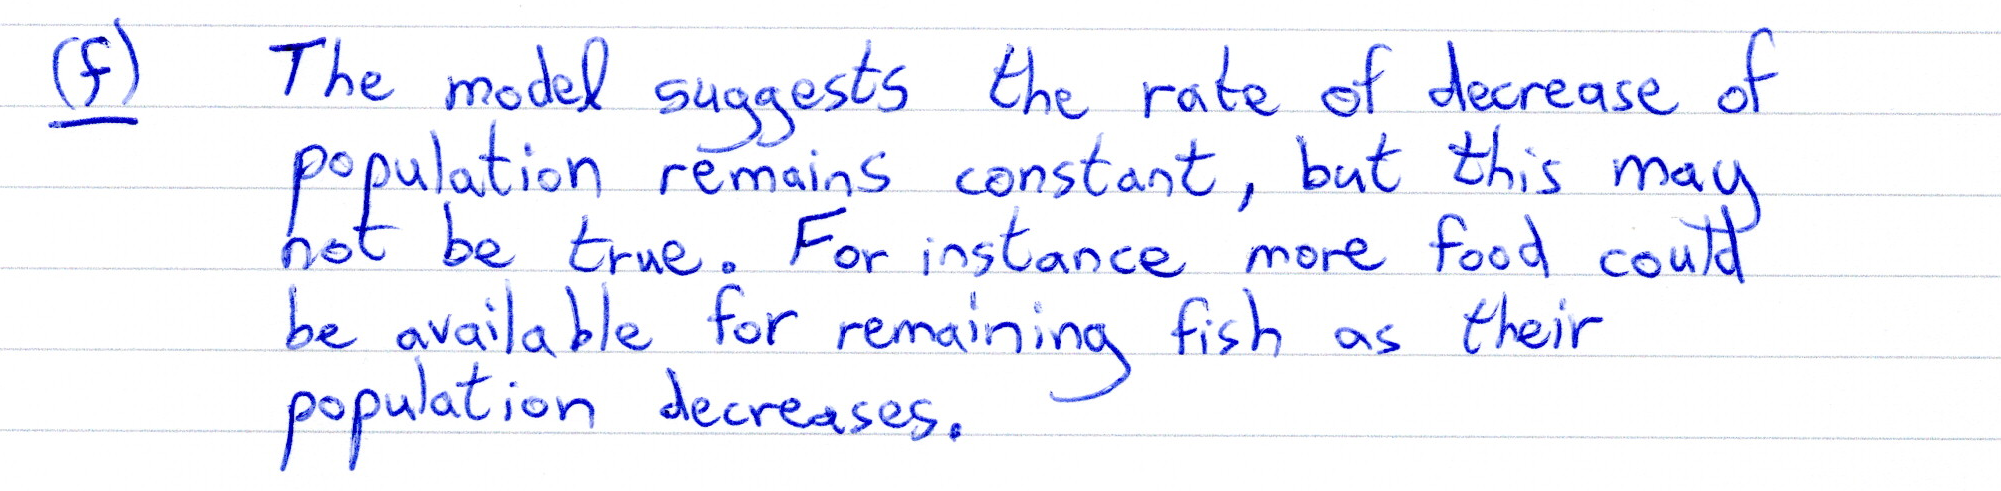 (f) The model suggests the rate of decrease of
population remains constant, but this may
not be true. For instance more food could
be available for remaining fish as their
population decreases.